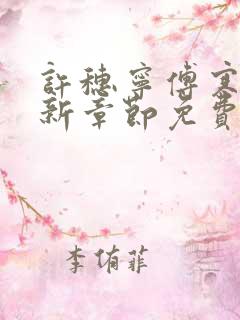 許穗寧傅寒
新章節免費
李侑菲